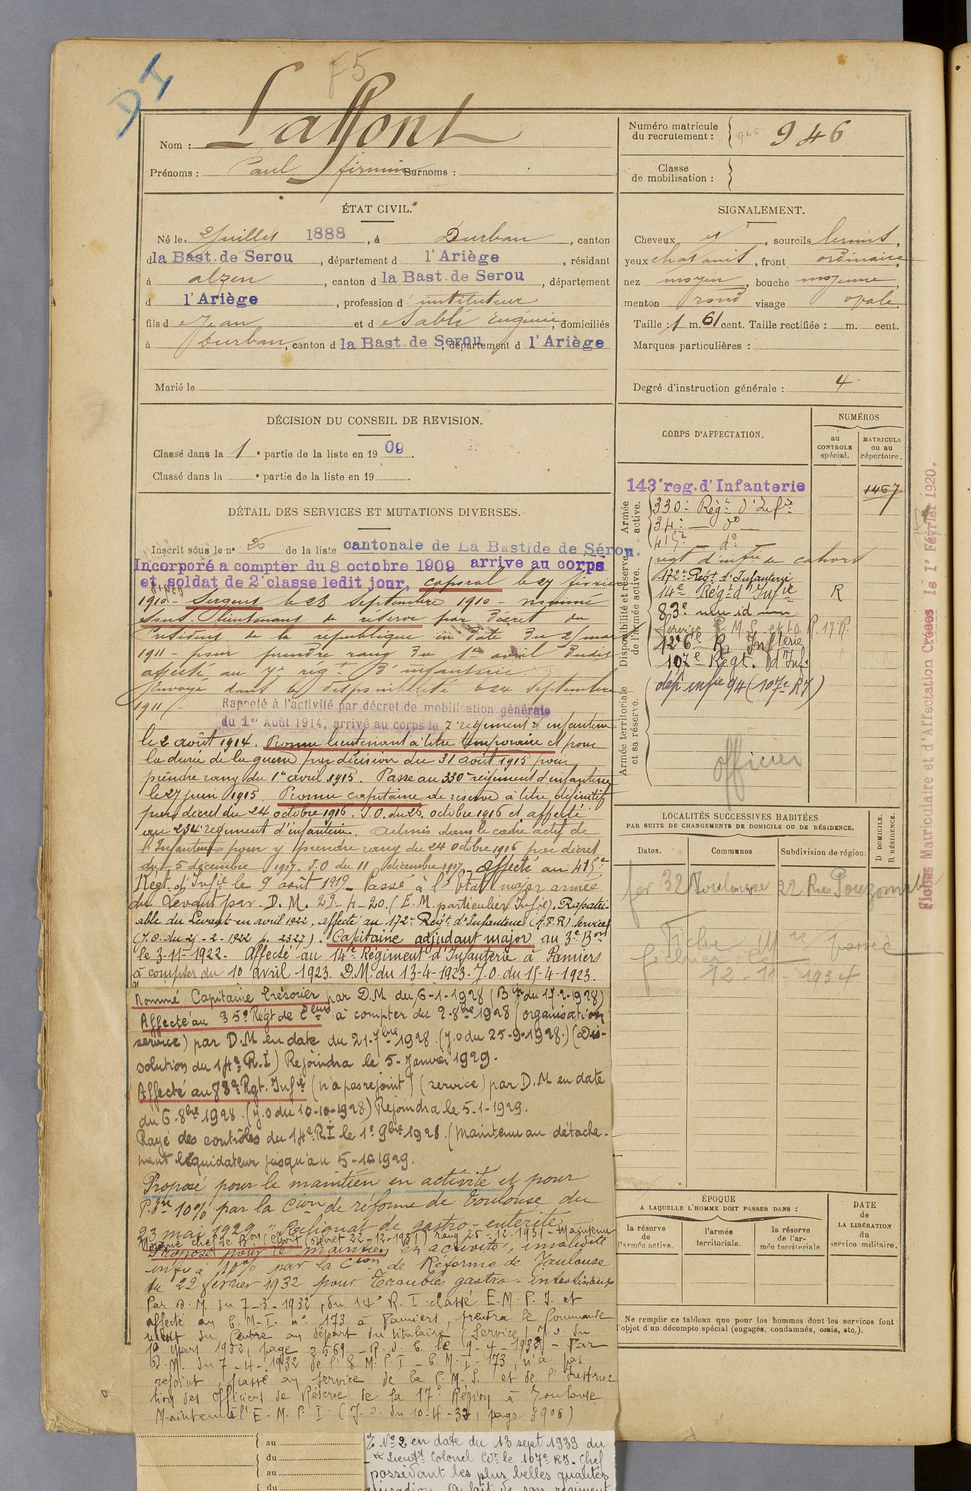 F5
Nom : Laffont
Prénoms : Paul firmin Surnoms :
Numéro matricule
du recrutement : 946
Classe
de mobilisation :
ÉTAT CIVIL.
Né le 2 juillet 1888, à Durban, canton
d la Bast. de Serou, département d l'Ariège, résidant
à alzen, canton d la Bast. de Serou, département
d l'Ariège, profession d instituteur
fils d Jean et d Sablé Eugénie, domiciliés
à Durban, canton d la Bast. de Serou, département d l'Ariège
Marié le
SIGNALEMENT.
Cheveux, sourcils
yeux chatains, front ordinaire
nez moyen, bouche moyenne
menton rond visage ovale.
Taille : 1 m. 61 cent. Taille rectifiée : m. cent.
Marques particulières :
Degré d'instruction générale : 4
DÉCISION DU CONSEIL DE REVISION.
Classé dans la 1e partie de la liste en 1909.
Classé dans la e partie de la liste en 19 .
DÉTAIL DES SERVICES ET MUTATIONS DIVERSES.
Inscrit sous le n° 26 de la liste cantonale de La Bastide de Sérou.
Incorporé a compter du 8 octobre 1909 arrive au corps
et soldat de 2e classe ledit jour, caporal le 27 février
1910 - Sergent le 23 Septembre 1910 - nommé
Sous-lieutenant de réserve par décret du
Président de la république en date du 2 mars
1911 - pour prendre rang du 1er avril dudit
affecté au 7e rég.t d'infanterie.
Envoyé dans la disponibilité le 24 septembre
1911
Rappelé à l'activité par décret de mobilisation générale
du 1er Août 1914, arrivé au corps le 2e régiment d'infanterie
le 2 août 1914. Promu lieutenant à titre temporaire et pour
la durée de la guerre par décision du 31 août 1915 pour
prendre rang du 1er avril 1915. Passe au 330e régiment d'infanterie
le 27 juin 1915. Promu capitaine de réserve à titre définitif
par décret du 24 octobre 1916. J.O. du 26 octobre 1916 et affecté
au 234e régiment d'infanterie. Admis dans le cadre actif de
l'Infanterie pour y prendre rang du 24 octobre 1916 par décret
du 5 décembre 1917. J.O. du 11 décembre 1917. Affecté au 415e
Régt d'Infie le 9 août 1919. Passé à l'état major armée
du Levant par D.M. 29-4-20. (E.M. particulier Infie). Rapatri-
able du Levant en avril 1922, affecté au 172e Régt d'Infanterie (A.F.R) Service
(J.O. du 21-2-1922 p. 2327). Capitaine adjudant major au 3e Bon
le 3-11-1922. Affecté au 14e Régiment d'Infanterie à Pamiers
à compter du 10 avril 1923. D.M. du 13-4-1923. J.O. du 15-4-1923.
Nommé Capitaine trésorier par D.M. du 6-1-1928 (B.on du 17-2-1928)
Affecté au 35e Régt de Tirs à compter du 2-8bre 1928 (organisation
service) par D.M en date du 21-7bre 1928. (J.O du 25-9-1928.) (Dis-
solution du 14e R.I) Rejoindra le 5-Janvier 1929.
Affecté au 83e Rgt. Infie (n'a pas rejoint) (service) par D.M en date
du 6-8bre 1928. (J.O du 10-10-1928) Rejoindra le 5-1-1929.
Rayé des contrôles du 14e R.I le 1er 9bre 1928. (Maintenu au détache-
ment liquidateur jusqu'au 5-1-1929.
Proposé pour le maintien en activité et pour
P.on 10% par la Cion de réforme de Toulouse du
23 mai 1929 : "Reliquat de gastro-entérite"
Nommé chef de Bon (décret 22-12-1931) rang 25-12-1931 - Maintenu
Proposé pour le maintien en activité, invalidité
infre à 10% par la Cion de Réforme de Toulouse
du 22 février 1932 pour Troubles gastro-intestinaux
Par D.M. du 7-3-1932, du 14e R.I. classé E.M.P.I. et
affecté au C-M-I. n° 173 à Pamiers, prendra le Commande
ment du Centre au départ du titulaire (Service, J.O. du
10 Mars 1932, page 2569 - R. d. C. le 9-4-1932) - Par
D.M. du 7-4-1932 de l'E.M.P.I - C.M.I-173, n'a pas
rejoint, passé au service de la P.M.S. et de l'Instruc
tion des Officiers de Réserve de la 17e Région à Toulouse
Maintenu à l'E-M.P.I. (J.O. du 10-4-32, page 3906)
CORPS D'AFFECTATION.
NUMÉROS
au
CONTROLE
spécial.
MATRICULE
ou au
répertoire.
Armée
active.
Disponibilité et réserve
de l'armée active.
Armée territoriale
et sa réserve.
143e reg. d'Infanterie 1467
330e Régt d'Infie
34e do
415e do
régt d'infie de cahors
172e Régt d'Infanterie
14e Régt d'Infie R
83e
Service P.M.S. et I.O.R. 17 R.
126e R. Infterie
107e Régt. d'Inf.
(dépt infie 94 (107e RI)
officier
LOCALITÉS SUCCESSIVES HABITÉES
PAR SUITE DE CHANGEMENTS DE DOMICILE OU DE RÉSIDENCE.
Dates.
Communes
Subdivision de région.
D DOMICILE.
R RÉSIDENCE.
32 Toulouse 22 Rue
Fiche passée
fichier le
12-11-1934
ÉPOQUE
A LAQUELLE L'HOMME DOIT PASSER DANS :
la réserve
de
l'armée active.
l'armée
territoriale.
la réserve
de l'ar-
mée territoriale.
DATE
de
LA LIBÉRATION
du
service militaire.
Ne remplir ce tableau que pour les hommes dont les services font
l'objet d'un décompte spécial (engagés, condamnés, omis, etc.).
Fiches Matriculaire et d'Affectation Créées le 1er Février 1920.
au
du
au
du
N° 2 en date du 13 sept 1939 du
Lieutt Colonel Ct le 107e RI. Chef
possédant les plus belles qualités